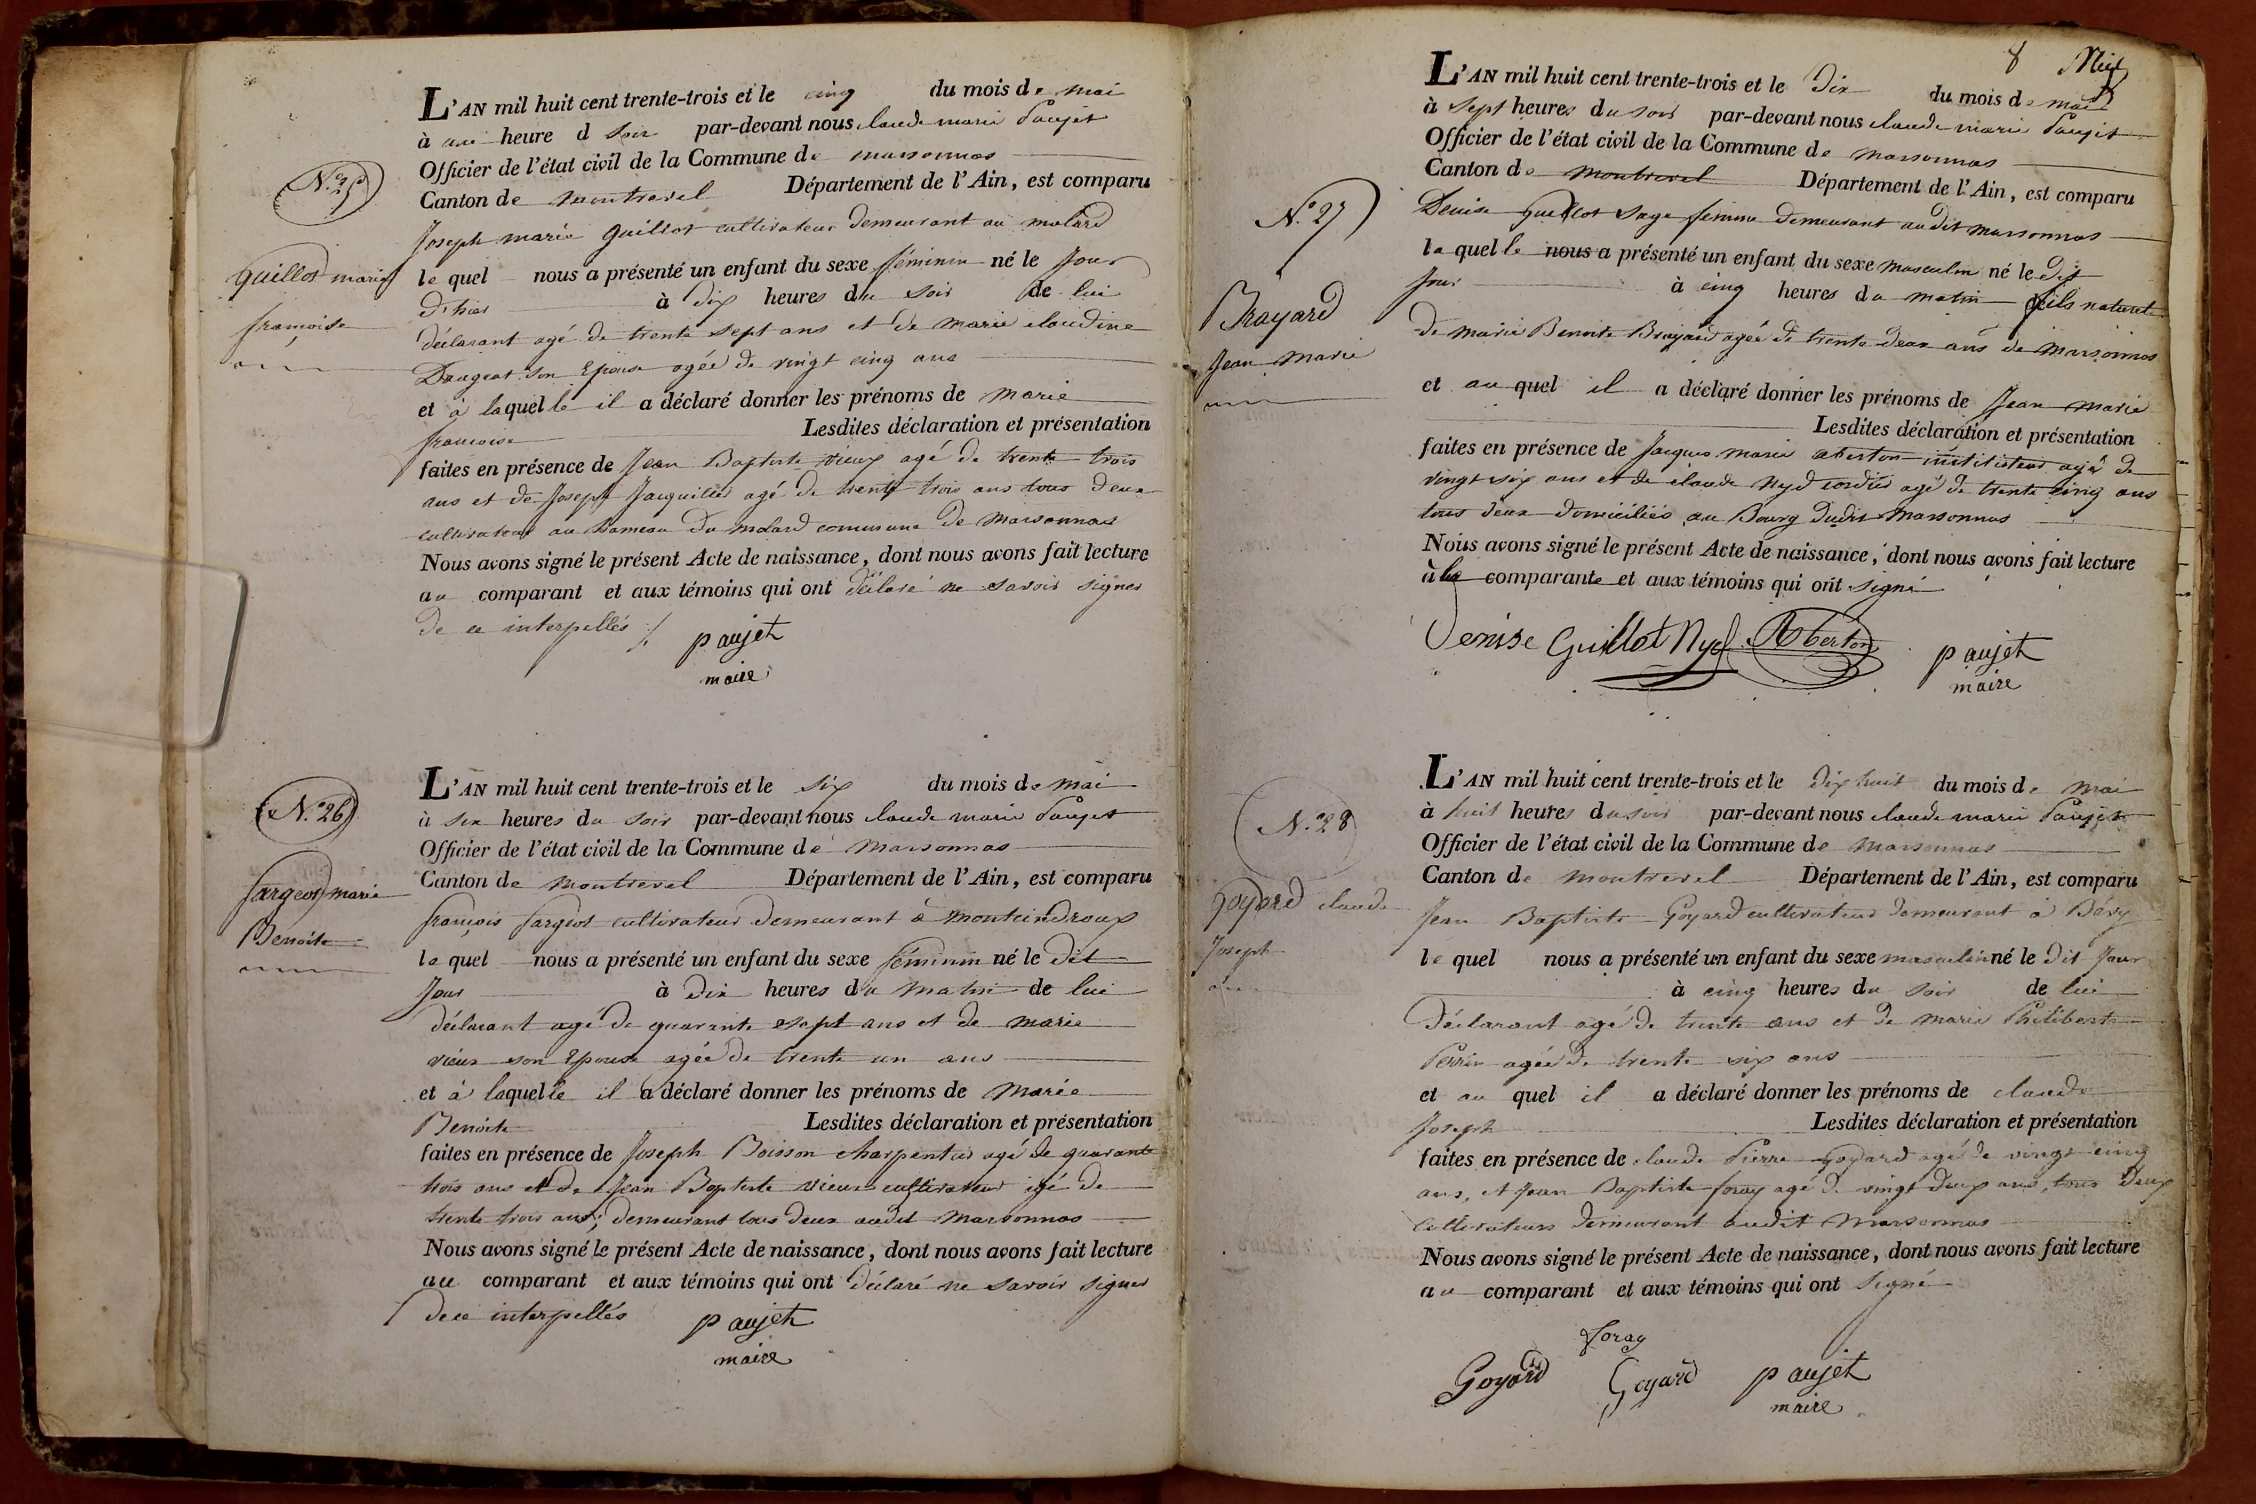 N.° 25
Guillot marie
françoise
L'AN mil huit cent trente-trois et le cinq du mois de mai
à une heure d soir par-devant nous claude marie Paujet
Officier de l'état civil de la Commune de marsonnas
Canton de montrevel Département de l'Ain, est comparu
Joseph marie guillot cultivateur demeurant au molard
le quel nous a présenté un enfant du sexe féminin né le Jour
d'hier à dix heures du soir de lui
déclarant agé de trente sept ans et de marie claudine
son Epouse agée de vingt cinq ans
et à laquelle il a déclaré donner les prénoms de marie
francoise Lesdites déclaration et présentation
faites en présence de Jean Baptiste vieux agé de trente trois
ans et de Joseph Jacquillet agé de trente trois ans tous deux
cultivateurs au hameau du molard commune de Marsonnas
Nous avons signé le présent Acte de naissance, dont nous avons fait lecture
au comparant et aux témoins qui ont déclaré ne savoir signer
de ce interpellés
paujet
maire
N.° 26
fargeot marie
Benoite
L'AN mil huit cent trente-trois et le six du mois de mai
à six heures du soir par-devant nous claude marie Paujet
Officier de l'état civil de la Commune de Marsonnas
Canton de montrevel Département de l'Ain, est comparu
françois fargeot cultivateur demeurant à monteindroux
le quel nous a présenté un enfant du sexe féminin né le dit
Jour à dix heures du matin de lui
déclarant agé de quarante sept ans et de marie
vieux son Epouse agée de trente un ans
et à laquelle il a déclaré donner les prénoms de marie
Benoite Lesdites déclaration et présentation
faites en présence de Joseph Boisson charpentier agé de quarante
trois ans et de Jean Baptiste vieux cultivateur agé de
trente trois ans; demeurant tous deux audit Marsonnas
Nous avons signé le présent Acte de naissance, dont nous avons fait lecture
au comparant et aux témoins qui ont déclaré ne savoir signer
de ce interpellés
paujet
maire
8 huit
N.° 27
Brayard
Jean marie
L'AN mil huit cent trente-trois et le dix du mois de mai
à sept heures du soir par-devant nous claude marie Paujet
Officier de l'état civil de la Commune de marsonnas
Canton de montrevel Département de l'Ain, est comparu
Denise Guillot Sage femme demeurant audit marsonnas
la quelle nous a présenté un enfant du sexe masculin né le dit
Jour à cinq heures du matin fils naturel
de marie Benoite Brayard agée de trente deux ans de Marsonnas
et au quel il a déclaré donner les prénoms de Jean marie
Lesdites déclaration et présentation
faites en présence de Jacques marie aberton instituteur agé de
vingt six ans et de claude Nyd cordier agé de trente cinq ans
tous deux domiciliés au Bourg dudit Marsonnas
Nous avons signé le présent Acte de naissance, dont nous avons fait lecture
à la comparante et aux témoins qui ont signé
Denise Guillot Nyd Aberton
paujet
maire
N.° 28
Goyard claude
Joseph
L'AN mil huit cent trente-trois et le dix huit du mois de mai
à huit heures du soir par-devant nous claude marie Paujet
Officier de l'état civil de la Commune de marsonnas
Canton de montrevel Département de l'Ain, est comparu
Jean Baptiste Goyard cultivateur demeurant à Bévy
le quel nous a présenté un enfant du sexe masculin né le dit Jour
à cinq heures du soir de lui
déclarant agé de trente ans et de marie Philiberte
Perrin agée de trente six ans
et au quel il a déclaré donner les prénoms de claude
Joseph Lesdites déclaration et présentation
faites en présence de claude Pierre Goyard agé de vingt cinq
ans, et Jean Baptiste foray agé de vingt deux ans, tous deux
cultivateurs demeurant audit Marsonnas
Nous avons signé le présent Acte de naissance, dont nous avons fait lecture
au comparant et aux témoins qui ont signé
foray
Goyard Goyard paujet
maire